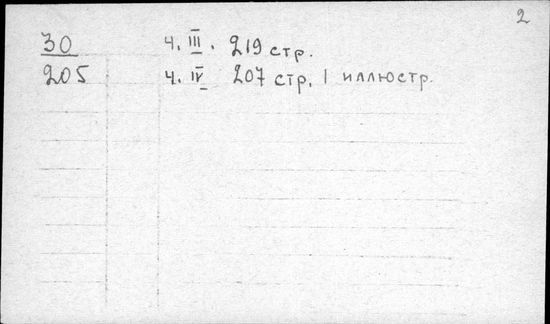 2
30 ч. III. 219 стр.
205 ч. IV 207 стр. 1 иллюстр.